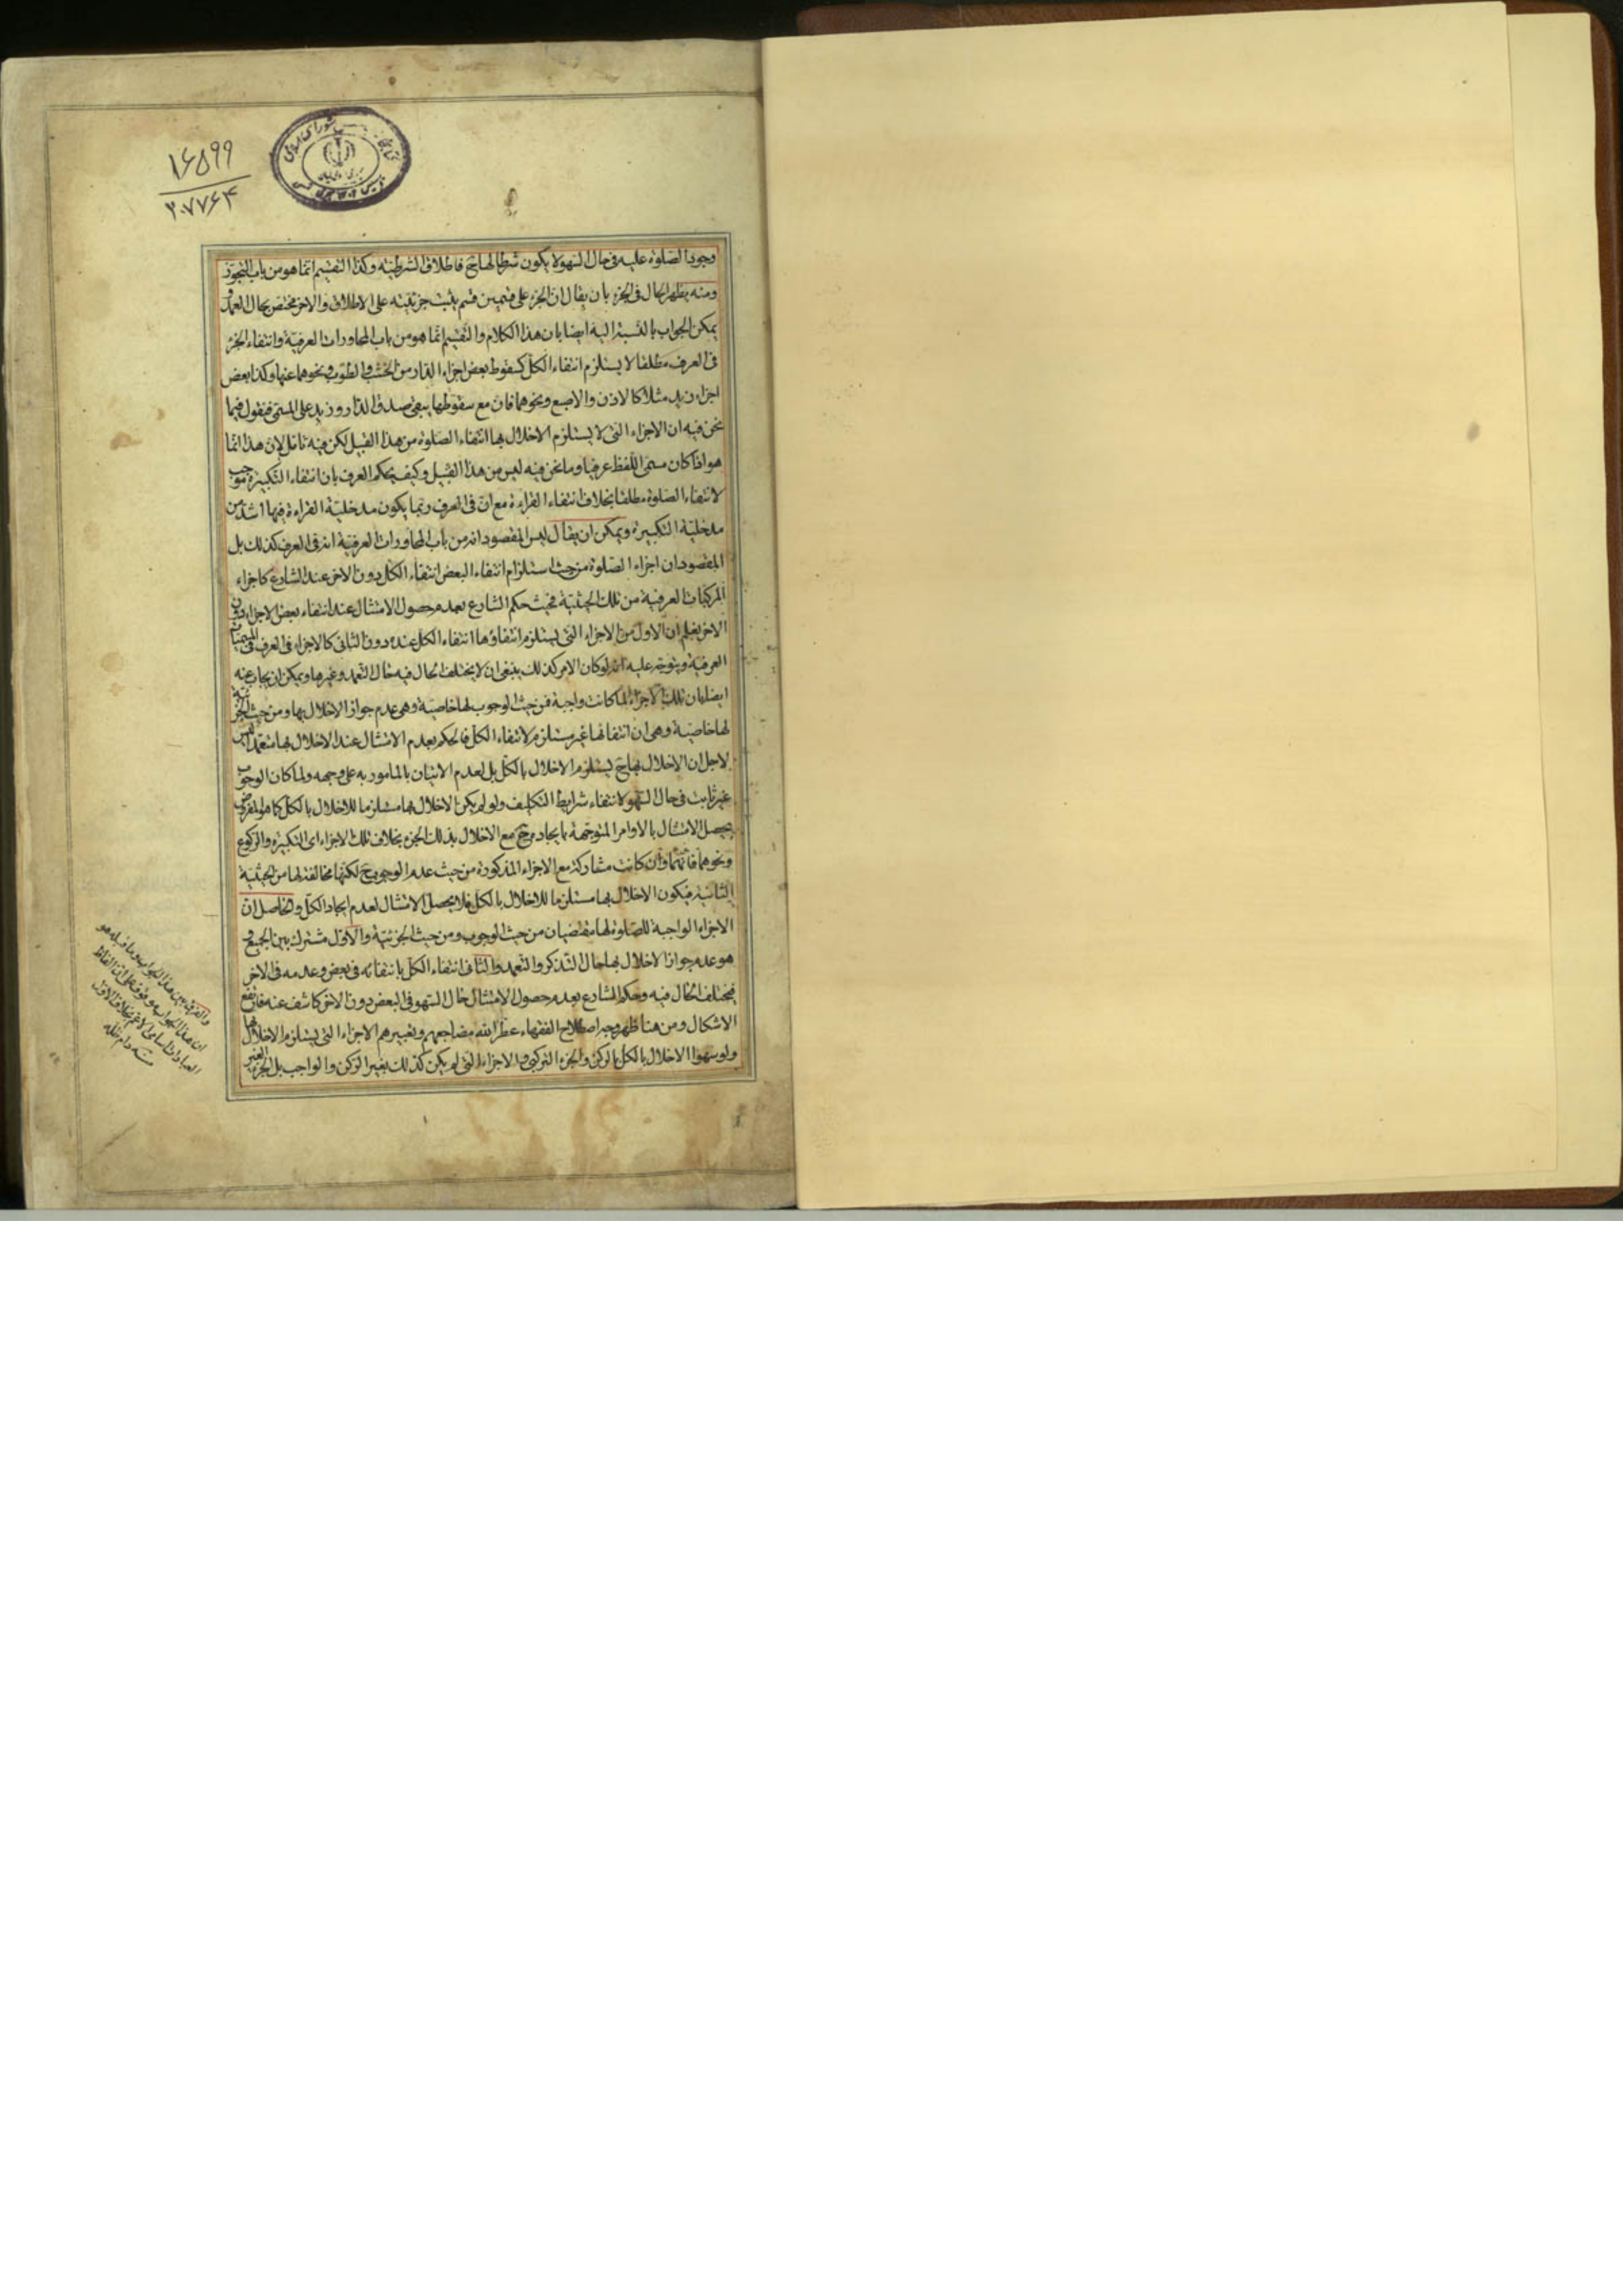 ۱۶۵۹۹
۲۰۷۷۶۴
وجود الصلوة عليه فى حال السهو لا يكون شرطا لها ح فاطلاق الشرطية وكذا التقسيم انما هو من باب التجوز
ومنه يظهر الحال فى الجزء بان يقال ان الجزء على قسمين قسم يثبت جزئيته على الاطلاق والاخر مختص بحال العمد و
يمكن الجواب بالنسبة اليه ايضا بان هذا الكلام والتقسيم انما هو من باب المحاورات العرفية وانتفاء الجزء
فى العرف مطلقا لا يستلزم انتفاء الكل كسقوط بعض اجزاء الدار من الخشب والطوب ونحوهما عنها وكذا بعض
اجزاء زيد مثلا كالاذن والاصبع ونحوهما فان مع سقوطها يبقى صدق الدار وزيد على المسمى فنقول فيما
نحن فيه ان الاجزاء التى لا يستلزم الاخلال بها انتفاء الصلوة من هذا القبيل لكن فيه تامل لان هذا انما
هو اذا كان مسمى اللفظ عرفيا وما نحن فيه ليس من هذا القبيل وكيف يحكم العرف بان انتفاء التكبيرة موجب
لانتفاء الصلوة مطلقا بخلاف انتفاء القراءة مع ان فى العرف ربما يكون مدخلية القراءة فيها اشد من
مدخلية التكبيرة ويمكن ان يقال ليس المقصود انه من باب المحاورات العرفية انه فى العرف كذلك بل
المقصود ان اجزاء الصلوة من حيث استلزام انتفاء البعض انتفاء الكل دون الاخر عند الشارع كاجزاء
المركبات العرفية من تلك الحيثية فحيث حكم الشارع بعدم حصول الامتثال عند انتفاء بعض الاجزاء دون
الاخر يعلم ان الاول من الاجزاء التى يستلزم انتفاؤها انتفاء الكل عنده دون الثانى كالاجزاء فى العرف فى المسميات
العرفية ويتوجه عليه انه لو كان الامر كذلك ينبغى ان لا يختلف الحال فيه حال التعمد وغيرها ويمكن ان يجاب عنه
ايضا بان تلك الاجزاء لما كانت واجبة فمن حيث الوجوب لها خاصية وهى عدم جواز الاخلال بها ومن حيث الجزئية
لها خاصية وهى ان انتفائها غير مستلزم لانتفاء الكل فالحكم بعدم الامتثال عند الاخلال بها متعمدا ليس
لاجل ان الاخلال بها ح يستلزم الاخلال بالكل بل لعدم الاتيان بالمامور به على وجهه ولما كان الوجوب
غير ثابت فى حال السهو لانتفاء شرايط التكليف ولو لم يكن الاخلال بها مستلزما للاخلال بالكل كما هو المفروض
يحصل الامتثال بالاوامر المتوجهة بايجاد مع الاخلال بذلك الجزء بخلاف تلك الاجزاء اى التكبيرة والركوع
ونحوهما فانها وان كانت مشاركة مع الاجزاء المذكورة من حيث عدم الوجوب ح لكنها مخالفة لها من الحيثية
الثانية فيكون الاخلال بها مستلزما للاخلال بالكل فلا يحصل الامتثال لعدم ايجاد الكل والحاصل ان
الاجزاء الواجبة للصلوة لها مقتضيان من حيث الوجوب ومن حيث الجزئية والاول مشترك بين الجميع و
هو عدم جواز الاخلال بها حال التذكر والتعمد والثانى انتفاء الكل بانتفائه فى بعض وعدمه فى الاخر
فيختلف الحال فيه وحكم الشارع بعدم حصول الامتثال حال السهو فى البعض دون الاخر كاشف عنه فارتفع
الاشكال ومن هنا ظهر وجه اصطلاح الفقهاء عطر الله مضاجعهم وتعبيرهم الاجزاء التى يستلزم الاخلال بها
ولو سهوا الاخلال بالكل بالركن والجزء التركيبى والاجزاء التى لم يكن كذلك بغير الركن والواجب بل الجزء الغير
والفرق بين هذا الجواب وما قبله هو
ان هذا الجواب موقوف على ان الفاظ
العبادات اسامى للاعم بخلاف الاول
منه دام ظله